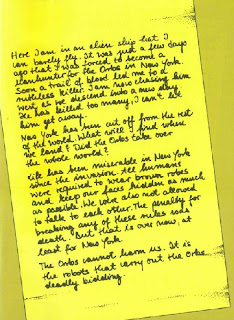 Here I am in an alien ship that I
can barely fly. It was just a few days
ago that I was forced to become a
manhunter for the Orbs in New York.
Soon a trail of blood led me to a
ruthless killer. I am now chasing him
west as we descend into a new day.
He has killed too many, I can't let
him get away.
New York has been cut off from the rest
of the world. What will I find when
we land? Did the Orbs take over
the whole world?
Life has been miserable in New York
since the invasion. All humans
were required to wear brown robes
and keep our faces hidden as much
as possible. We were also not allowed
to talk to each other. The penalty for
breaking any of these rules was
death. But that is over now, at
least for New York.
The Orbs cannot harm us. It is
the robots that carry out the Orbs
deadly bidding.